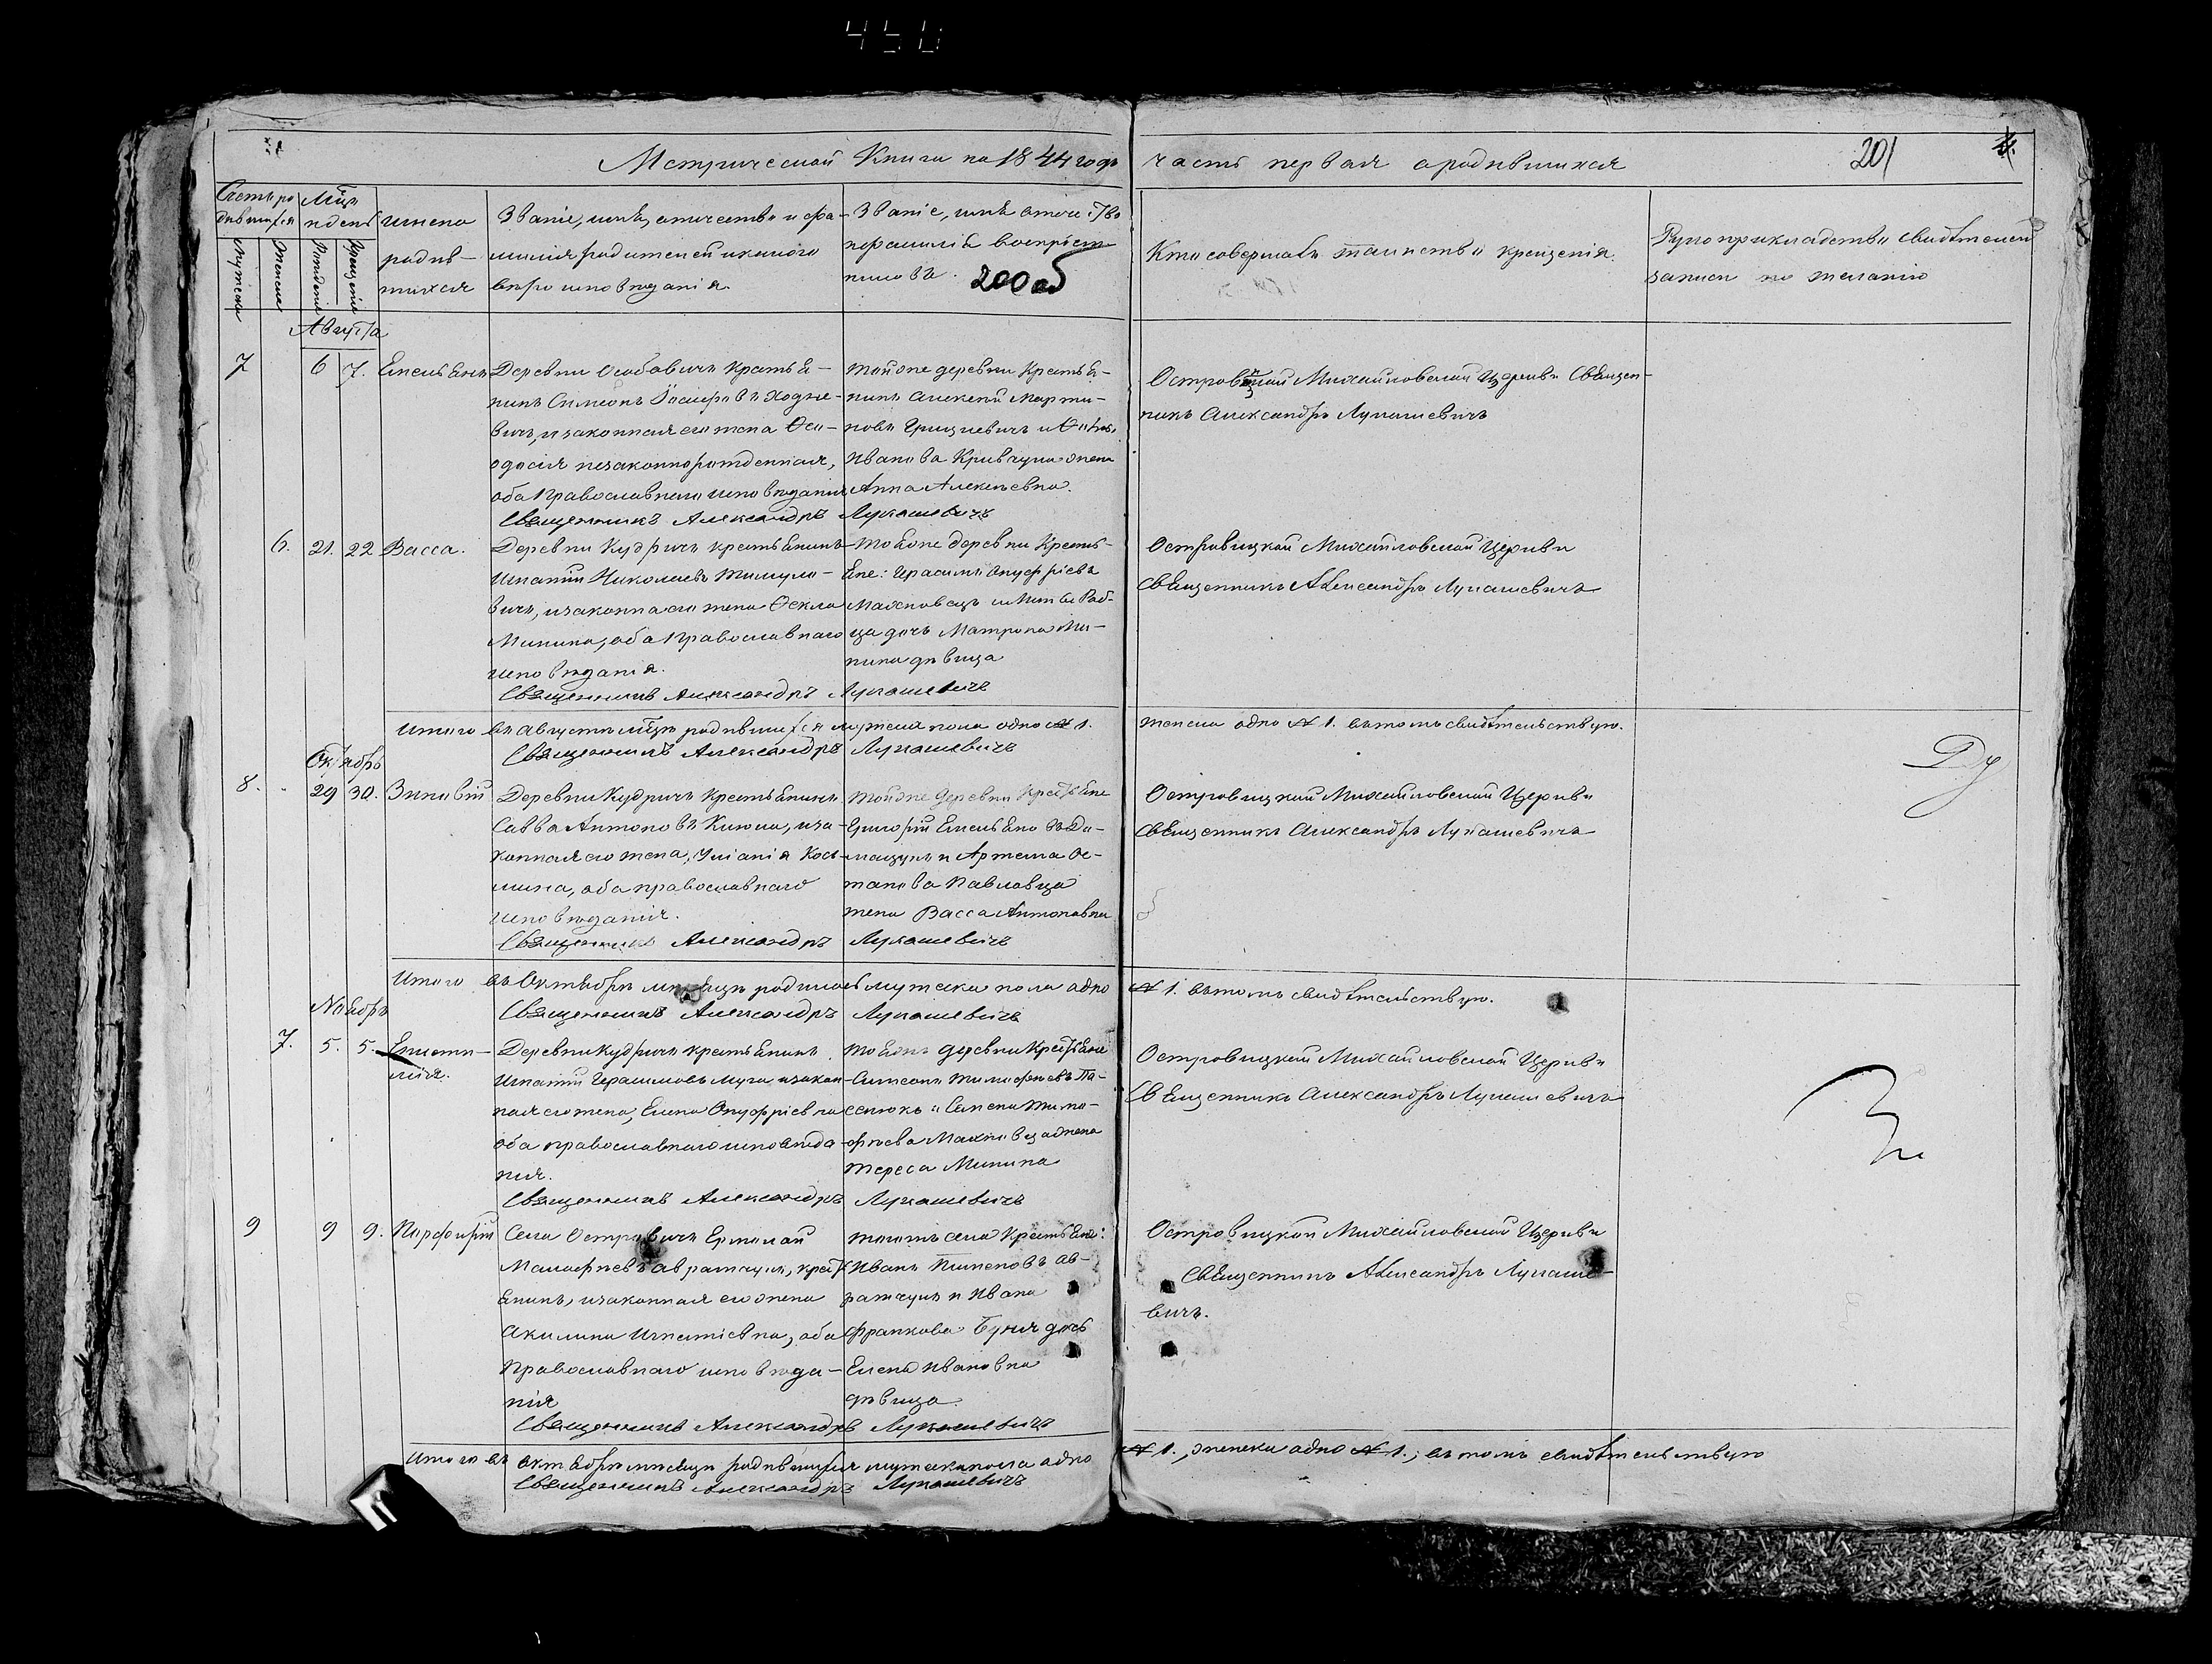 450
Метрической Книги на 1844 годъ часть первая о родившихся
201
Счетъ ро-
дившихся
Мужеска
Женска
Мцъ
и день
Рожденія
Крещенія
имена
родив-
шихся
Званіе, имя, отчество и фа-
милія родителей и какого
вѣроисповѣданія.
Званіе, имя отчество
и фамилія воспріем-
никовъ.
200 об
Кто совершалъ таинство крещенія.
Рукоприкладство свидѣтелей
записи по желанію
Августа
7 6 7. Емельянъ
Деревни Особовичъ крестья-
нинъ Симеонъ Іосифовъ Ходне-
вичъ, и законная его жена Ѳео-
одосія незаконнорожденная,
оба Православнаго исповѣданія
Священникъ Александръ Лукашевичъ
тойже деревни Крестья-
нинъ Алексей Марти-
новъ Грицкевичъ и
Иванова Кривчука жена
Анна Алексѣевна.
Островицкой Михайловской Церкви Священ-
никъ Александръ Лукашевичъ
6. 21. 22 Васса.
Деревни Кудричъ крестьянинъ
Игнатій Николаевъ
вичъ, и законна его жена Ѳекла
Минина, оба Православнаго
исповѣданія.
Священникъ Александръ Лукашевичъ
тояже деревни Кресть-
яне: Герасимъ Онуфріевъ
Махновецъ и
ца дочь Матрона Ми-
нина дѣвица
Островицкой Михайловской Церкви
Священникъ Александръ Лукашевичъ
Итого въ Августѣ мцѣ родившихся мужеска пола одно № 1. женска одно № 1. въ томъ свидѣтельствую.
Священникъ Александръ Лукашевичъ
Октябрь
8. 29 30. Зиновій
Деревни Кудричъ Крестьянинъ
Савва Антоновъ Кимша, и за-
конная его жена, Уліанія Кось-
мина, оба православнаго
исповѣданія.
Священникъ Александръ Лукашевичъ
тойже деревни Крестьяне
Григорій Емельяновъ До-
мацукъ и Артема Ос-
тапова Павловца
жена Васса Антоновна
Островицкой Михайловской Церкви
Священникъ Александръ Лукашевичъ
Ду
Итого въ Октябрѣ мѣсяцѣ родилось мужеска пола одно № 1. въ томъ свидѣтельствую.
Священникъ Александръ Лукашевичъ
Ноябрь
7. 5. 5.
Деревни Кудричъ крестьянинъ
Игнатій Герасимовъ Муха, и закон-
ная его жена, Елена Онуфріевна
оба православнаго исповѣда-
нія.
Священникъ Александръ Лукашевичъ
тояже деревни Крестьяне
Симеонъ Тимофеевъ Па-
сенюкъ и Семена Тимо-
фѣева Махновца жена
Тереса Минина
Островицкой Михайловской Церкви
Священникъ Александръ Лукашевичъ
9 9 9. Порфирій
Села Островичъ Ермолай
Малафіевъ Авратчукъ, крест-
янинъ, и законная его жена
Акилина Игнатіевна, оба
Православнаго исповѣда-
нія
Священникъ Александръ Лукашевичъ
тогожъ села Крестьяне:
Иванъ Пименовъ Ав-
ратчукъ и Ивана
Франкова Буня дочь
Елена Ивановна
дѣвица.
Островицкой Михайловской Церкви
Священникъ Александръ Лукаше-
вичъ.
Итого въ октябрѣ мѣсяцѣ родившихся мужеска пола одно № 1., женска одно № 1.; въ томъ свидѣтельствую
Священникъ Александръ Лукашевичъ